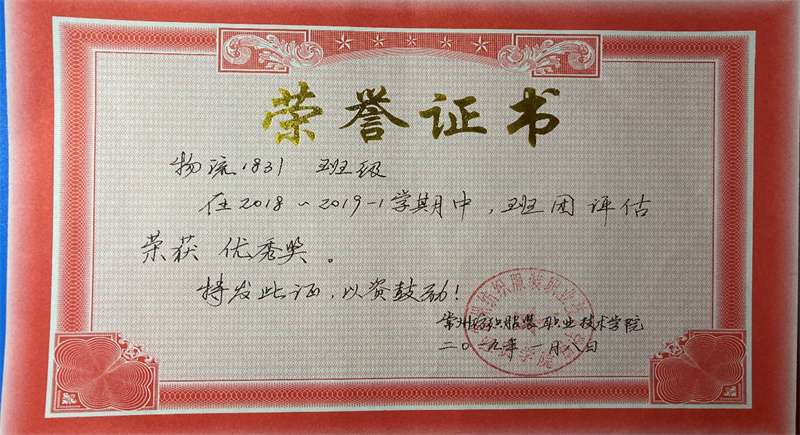 荣誉证书
物流1831 班级
在2018~2019-1学期中，班团评估
荣获 优秀奖。
特发此证，以资鼓励！
常州纺织服装职业技术学院
二〇一九年一月八日